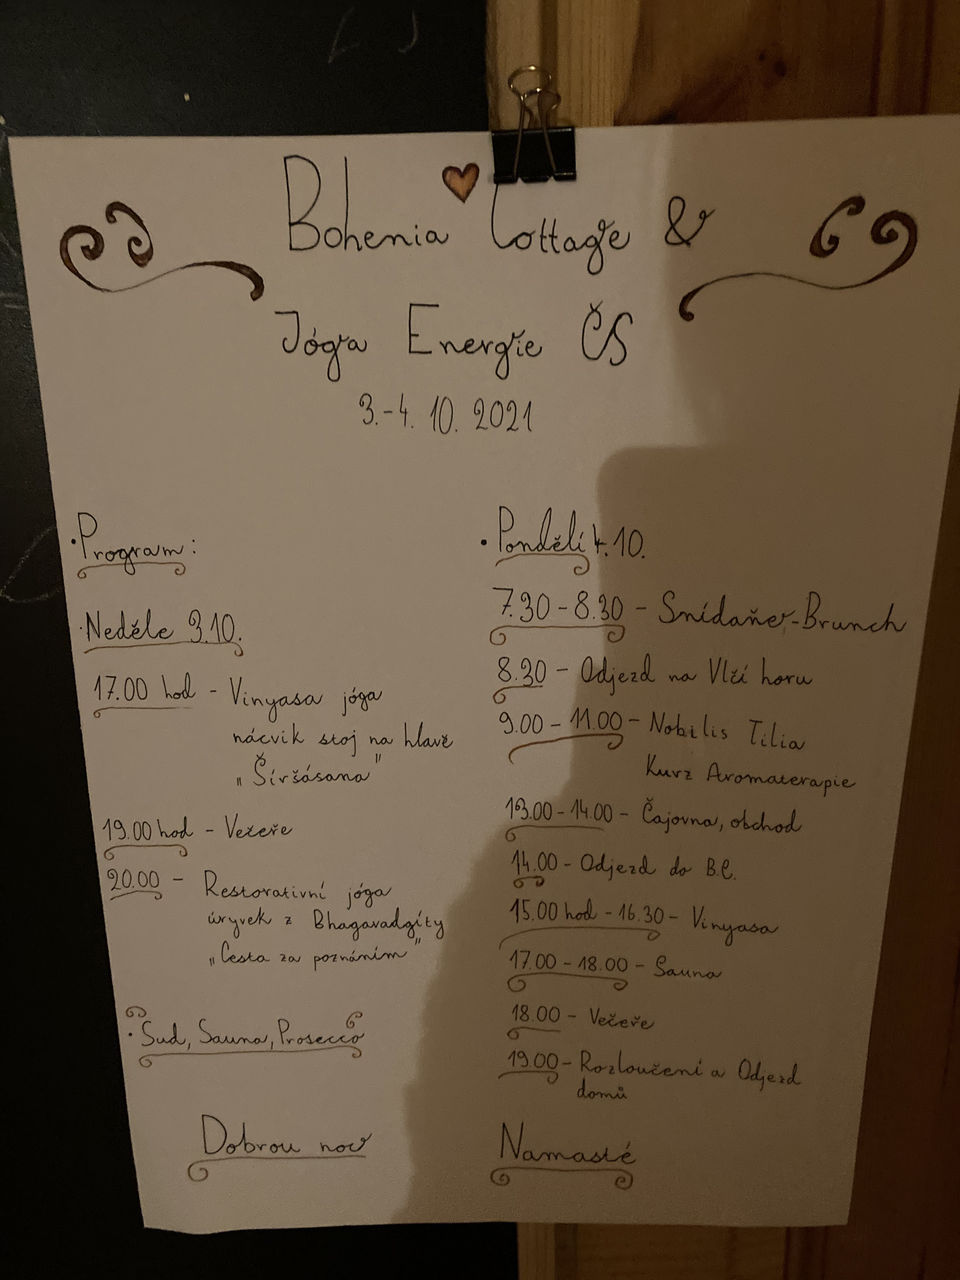 Bohenia Cottage &
Jóga Energie ČS
3.-4. 10. 2021
• Program:
• Neděle 3.10.
17.00 hod - Vinyasa jóga
nácvik stoj na hlavě
„Širšásana"
19.00 hod - Večeře
20.00 - Restorativní jóga
úryvek z Bhagavadgíty
„Cesta za poznáním"
• Sud, Sauna, Prosecco
Dobrou noc
• Pondělí 4.10.
7.30 - 8.30 - Snídaňe-Brunch
8.30 - Odjezd na Vlčí horu
9.00 - 11.00 - Nobilis Tilia
Kurz Aromaterapie
13.00 - 14.00 - Čajovna, obchod
14.00 - Odjezd do B.C.
15.00 hod - 16.30 - Vinyasa
17.00 - 18.00 - Sauna
18.00 - Večeře
19.00 - Rozloučení a Odjezd
domů
Namasté